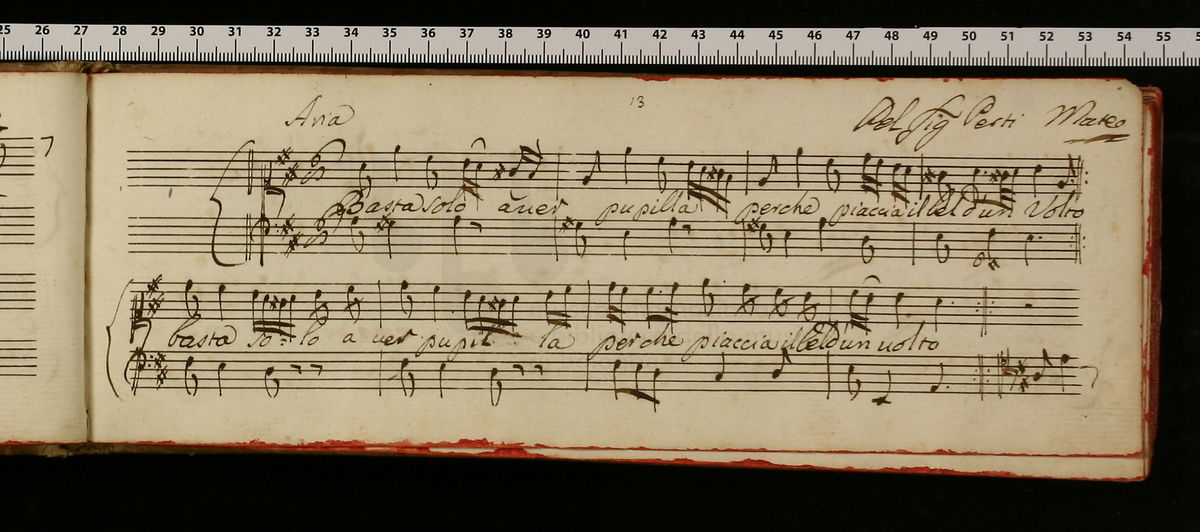 25 26 27 28 29 30 31 32 33 34 35 36 37 38 39 40 41 42 43 44 45 46 47 48 49 50 51 52 53 54 55
13
Aria Del Sig Perti Mateo
Basta solo auer pupilla perche piaccia il bel d'un Volto
basta so = lo a uer pupil la perche piaccia il bel d'un uolto